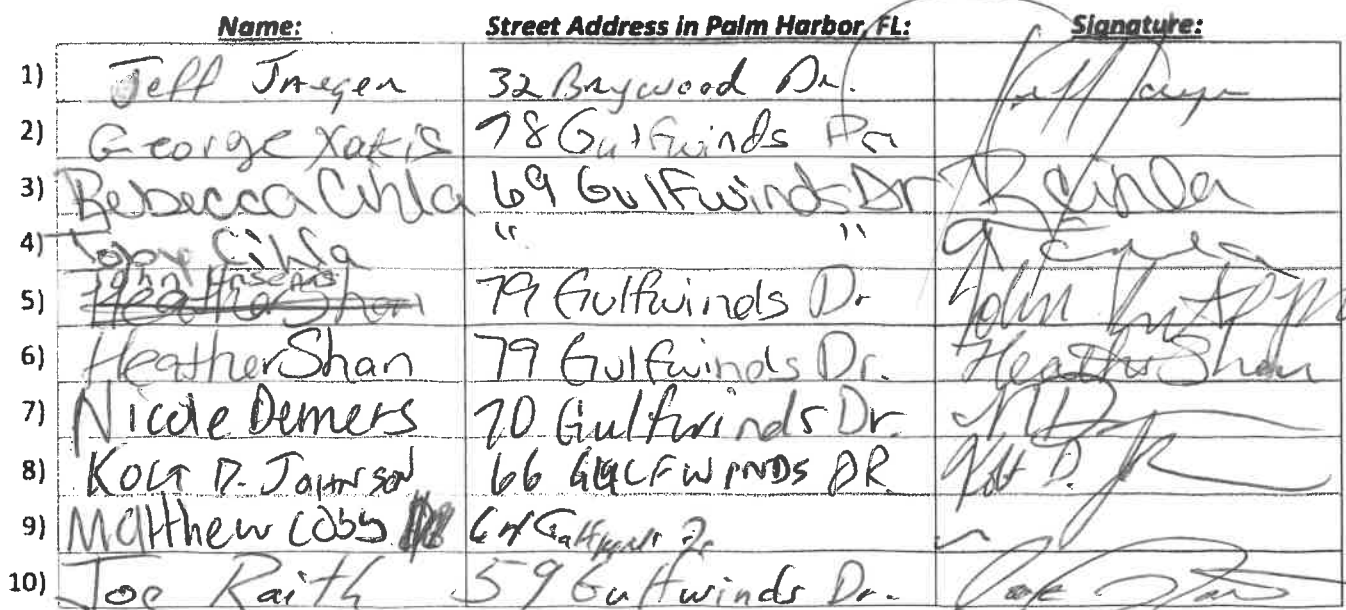 Name: Street Address in Palm Harbor, FL: Signature:
1) Jeff Jaeger 32 Baywood Dr.
2) George Xakis 78 Gulfwinds Dr
3) Rebecca Cihla 69 Gulfwinds Dr R Cihla
4) Cihla " "
5) Heather Shan 79 Gulfwinds Dr John
6) Heather Shan 79 Gulfwinds Dr. Heather Shan
7) Nicole Demers 70 Gulfwinds Dr. ND
8) KOLT D. JOHNSON 66 GULFWINDS DR. Kolt D. J
9) Matthew Coby
10) Joe Raith 59 Gulfwinds Dr.